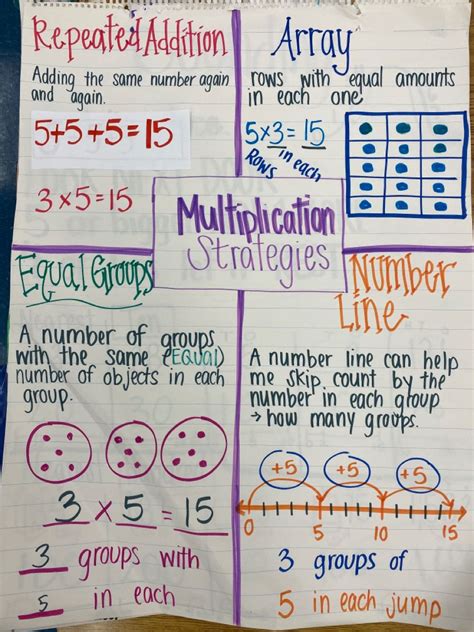 Repeated Addition
Adding the same number again
and again.
5+5+5=15
3x5=15
Array
rows with equal amounts
in each one
5x3=15
ROWS in each
Multiplication
Strategies
Equal Groups
A number of groups
with the same (EQUAL)
number of objects in each
group.
3 x 5 = 15
3 groups with
5 in each
Number
Line
A number line can help
me skip count by the
number in each group
→ how many groups.
+5 +5 +5
0 5 10 15
3 groups of
5 in each jump